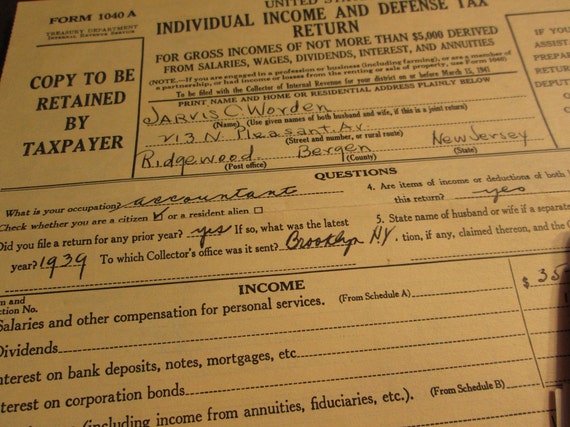 FORM 1040 A
UNITED
TREASURY DEPARTMENT
INTERNAL REVENUE SERVICE
INDIVIDUAL INCOME AND DEFENSE TAX
RETURN
COPY TO BE
RETAINED
BY
TAXPAYER
FOR GROSS INCOMES OF NOT MORE THAN $5,000 DERIVED
FROM SALARIES, WAGES, DIVIDENDS, INTEREST, AND ANNUITIES
(NOTE.—If you are engaged in a profession or business (including farming), or are a member of
a partnership, or had income or losses from the renting or sale of property, use Form 1040)
To be filed with the Collector of Internal Revenue for your district on or before March 15, 1941
PRINT NAME AND HOME OR RESIDENTIAL ADDRESS PLAINLY BELOW
JARVIS C Worden
(Name) (Use given names of both husband and wife, if this is a joint return)
213 N Pleasant Av.
(Street and number, or rural route)
Ridgewood Bergen New Jersey
(Post office) (County) (State)
IF
ASSIST
PREPAR
RETURN
DEPU
QUESTIONS
What is your occupation? accountant
Check whether you are a citizen ☑ or a resident alien ☐
Did you file a return for any prior year? yes If so, what was the latest
year? 1939 To which Collector's office was it sent? Brooklyn NY.
4. Are items of income or deductions of both
this return? yes
5. State name of husband or wife if a separate
tion, if any, claimed thereon, and the
INCOME
Salaries and other compensation for personal services. (From Schedule A)
$ 35
Dividends
Interest on bank deposits, notes, mortgages, etc
Interest on corporation bonds
(including income from annuities, fiduciaries, etc.). (From Schedule B)